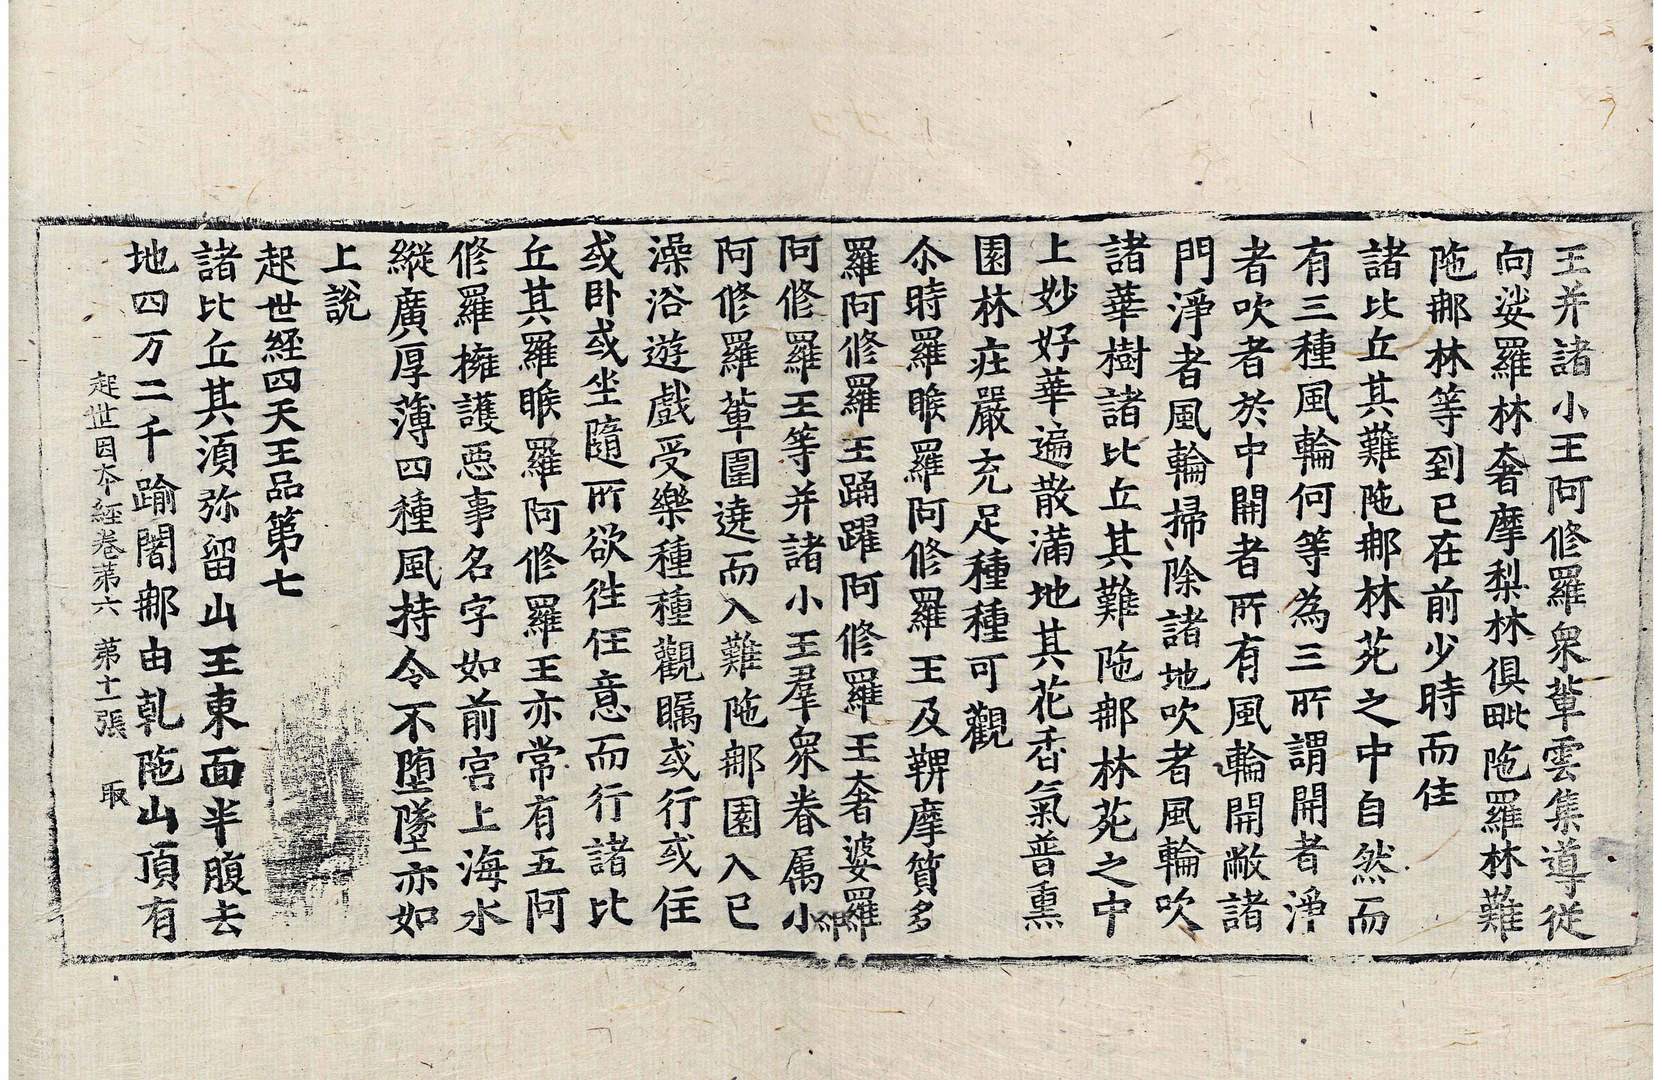 王并諸小王阿修羅衆軰雲集導從
向娑羅林奢摩梨林俱毗陁羅林難
陁那林等到已在前少時而住
諸比丘其難陁那林苑之中自然而
有三種風輪何等為三所謂開者淨
者吹者於中開者所有風輪開敞諸
門淨者風輪掃除諸地吹者風輪吹
諸華樹諸比丘其難陁那林苑之中
上妙好華遍散滿地其花香氣普熏
園林莊嚴充足種種可觀
尒時羅睺羅阿修羅王及鞞摩質多
羅阿修羅王踊躍阿修羅王奢婆羅
阿修羅王等并諸小王羣衆眷属小
阿修羅軰圍遶而入難陁那園入已
澡浴遊戲受樂種種觀瞩或行或住
或卧或坐隨所欲徃任意而行諸比
丘其羅睺羅阿修羅王亦常有五阿
修羅擁護惡事名字如前宮上海水
縱廣厚薄四種風持令不墮墜亦如
上說
起世經四天王品第七
諸比丘其湏弥留山王東面半腹去
地四万二千踰闍那由乹陁山頂有
起世因本經卷第六　第十一張　取